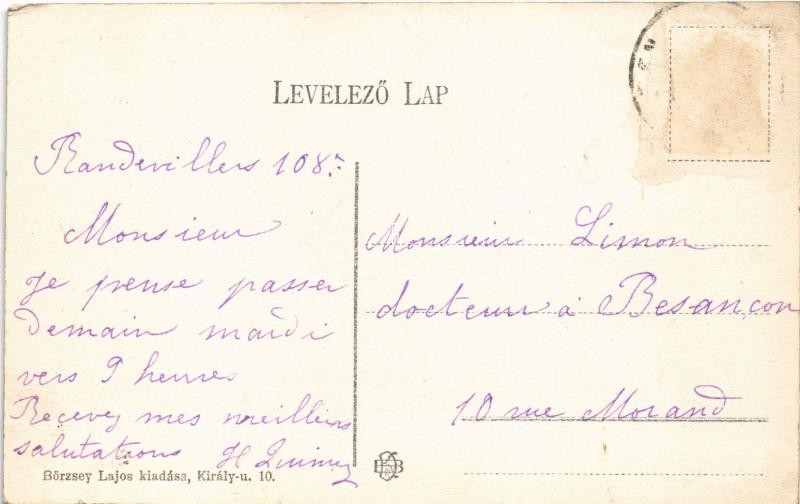 LEVELEZŐ LAP
Randevillers
Monsieur
Je pense passer
Demain mardi
vers 9 heures
Recevez mes meilleurs
salutations H
Börzsey Lajos kiadása, Király-u. 10.
Monsieur Limon
docteur à Besançon
10 rue Morand